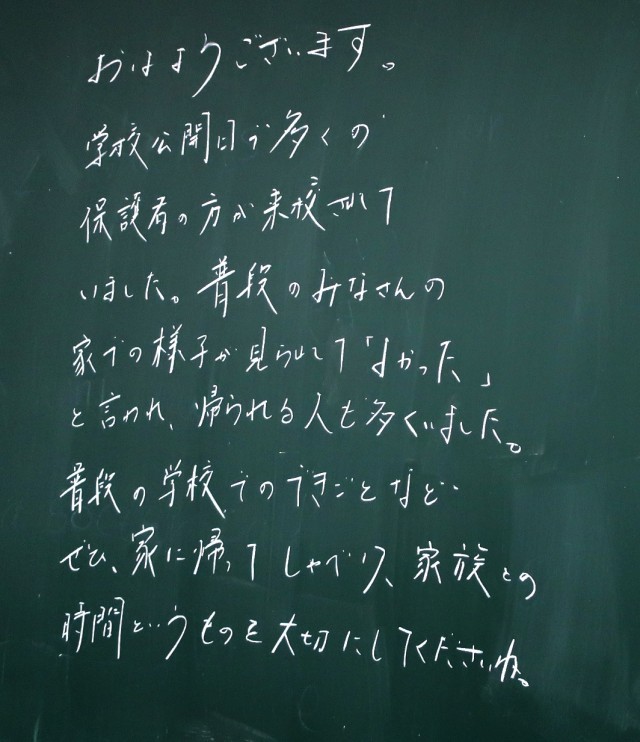 おはようございます。
学校公開日が多くの
保護者の方が来校されて
いました。普段のみなさんの
家での様子が見られて「よかった」
と言われ、帰られる人も多くいました。
普段の学校でのできごとなど
ぜひ、家に帰ってしゃべり、家族との
時間というものを大切にしてくださいね。